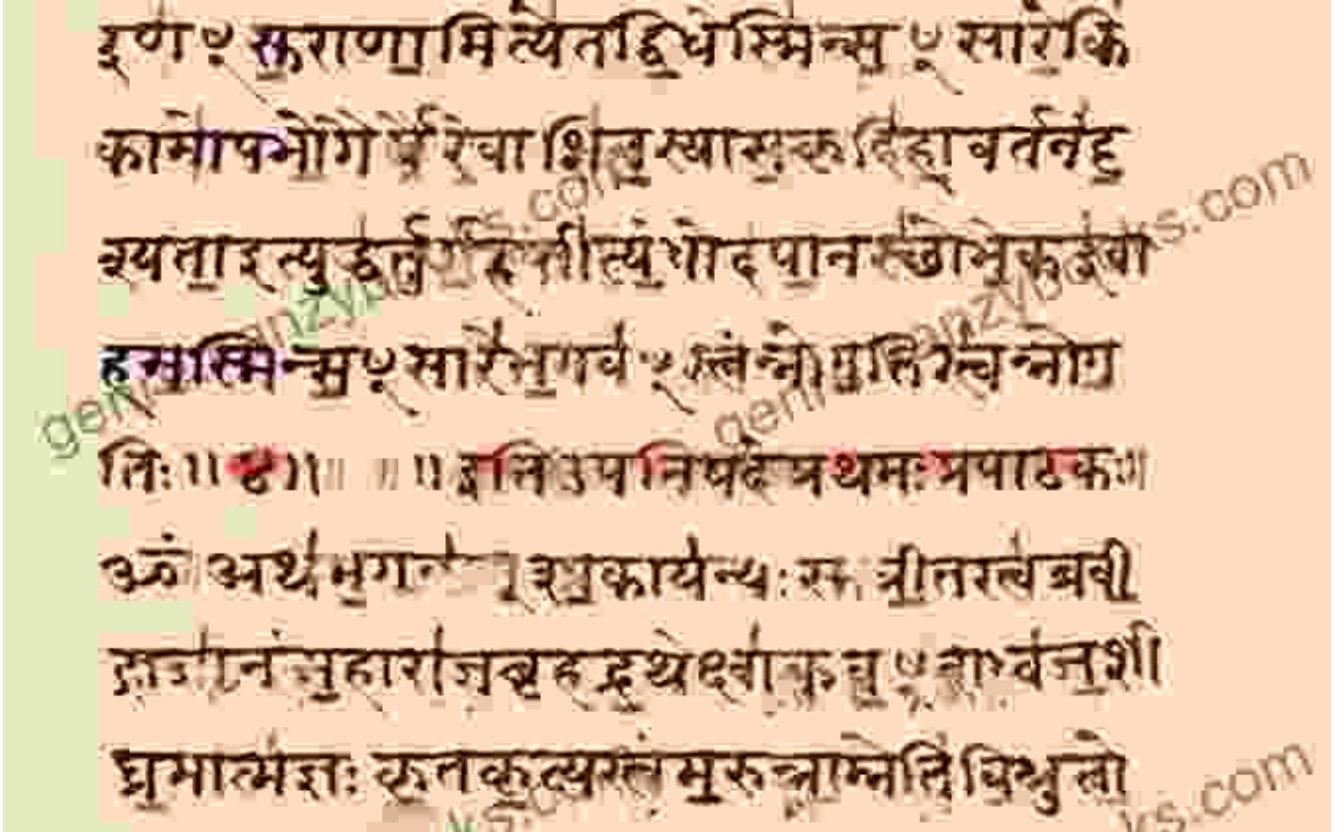 रणꣳ सुराणामित्येतद्विधेस्मिन्सꣳसारेकिं
कामोपभोगैर्यैरेवाशितस्यासकृदिहावर्तनंदृ
श्यताइत्युद्धर्तुर्महसीत्यंधोदपानस्थोभेकइवा
हमस्मिन्सꣳसारेभगवꣳस्त्वंनोगतिस्त्वन्नोग
तिः॥४॥ ॥इतिउपनिषदेप्रथमःप्रपाठकः॥
ॐ अथभगवा शाकायन्यः त्रीतस्त्वब्रवी
द्राजानंमहाराजबृहद्रथेक्ष्वाकुवꣳशध्वजशी
घ्रमात्मज्ञः कृतकृत्यस्त्वंमरुन्नाम्नेतिविश्रुतो